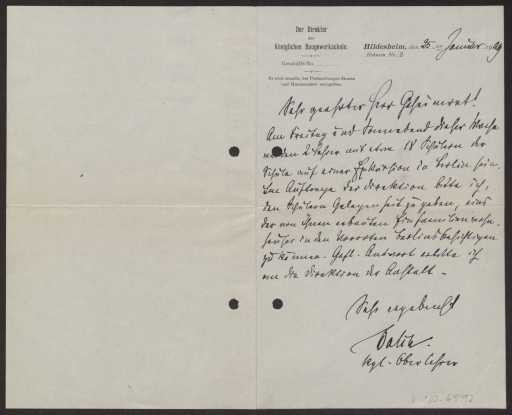 Der Direktor
der
Königlichen Baugewerkschule.
Geschäfts-No.
Hildesheim, den 25. ten Januar 1909
Es wird ersucht, bei Rückantworten Datum
und Nummer anzugeben.
Sehr geehrter Herr Geheimrat!
Am Freitag und Sonnabend dieser Woche
werden 2 Lehrer mit etwa 18 Schülern der
Schule auf einer Exkursion in Berlin sein.
Im Auftrage der Direktion bitte ich,
den Schülern Gelegenheit zu geben, eins
der von Ihnen erbauten Einfamilienwohn-
häuser in den Vororten Berlins besichtigen
zu können. Gefl. Antwort erbitte ich
an die Direktion der Anstalt.
Sehr ergebenst
Kgl. Oberlehrer